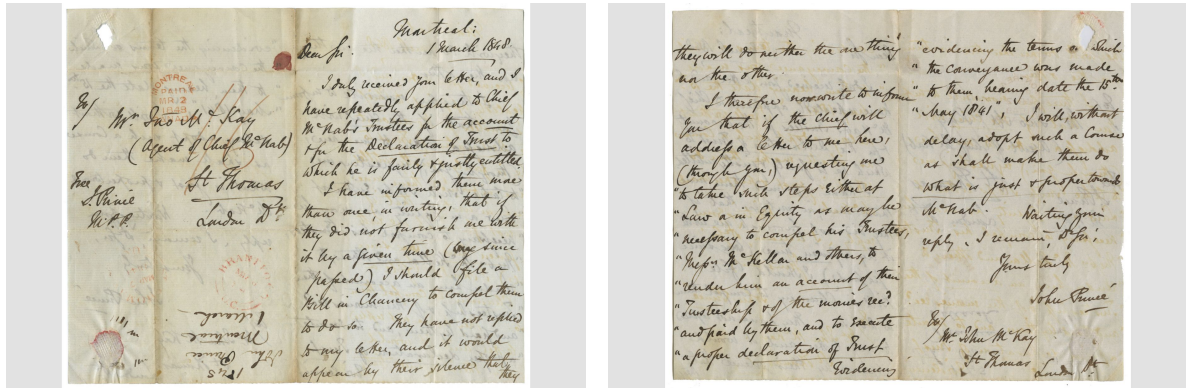 To/
Mr. Jno Mc. Kay
(Agent of Chief McNab)
St Thomas
London Dt.
Free
J. Prince
M.P.P.
MONTREAL
PAID
MR/2
1848
BRANTFORD
1848
John Prince
Montreal
1 March
Montreal:
1 March 1848
Dear Sir.
I duly received your letter, and I
have repeatedly applied to Chief
McNab's Trustees for the account
& for the Declaration of Trust to
which he is fairly & justly entitled.
I have informed them more
than once, in writing, that if
they did not furnish me with
it by a given time (long since
passed) I should file a
Bill in Chancery to compel them
to do so. They have not replied
to my letter, and it would
appear by their silence that they
they will do neither the one thing
nor the other.
I therefore now write to inform
you that if the Chief will
address a letter to me here,
(through you,) requesting me
"to take such steps either at
"Law or in Equity as may be
"necessary to compel his Trustees,
"Messrs. McKellar and others, to
"render him an account of their
"Trusteeship & of the monies recd.
"and paid by them, and to execute
"a proper declaration of Trust
Evidencing
"evidencing the terms on which
"the conveyance was made
"to them bearing date the 15th
"May 1841", I will, without
delay, adopt such a Course
as shall make them do
what is just & proper towards
McNab. Waiting your
reply, I remain, Dr Sir,
Yours truly
John Prince
To/
Mr. John McKay
St Thomas
London Dt.